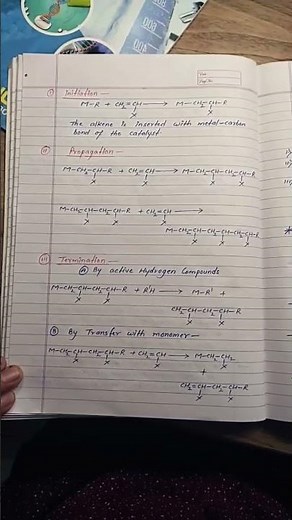 (i) Initiation —
M-R + CH₂=CH ⟶ M-CH₂-CH-R
X X
The alkene is inserted with metal-carbon
bond of the catalyst.
(ii) Propagation —
M-CH₂-CH-R + CH₂=CH ⟶ M-CH₂-CH-CH₂-CH-R
X X X X
M-CH₂-CH-CH₂-CH-R + CH₂=CH ⟶
X X X
M-CH₂-CH-CH₂-CH-CH₂-CH-R
X X X
(iii) Termination —
(A) By active Hydrogen Compounds
M-CH₂-CH-CH₂-CH-R + R'H ⟶ M-R' +
X X
CH₃-CH-CH₂-CH-R
X X
(B) By Transfer with monomer —
M-CH₂-CH-CH₂-CH-R + CH₂=CH ⟶ M-CH₂-CH₂
X X X X
+
CH₂=C-CH₂-CH-R
X X